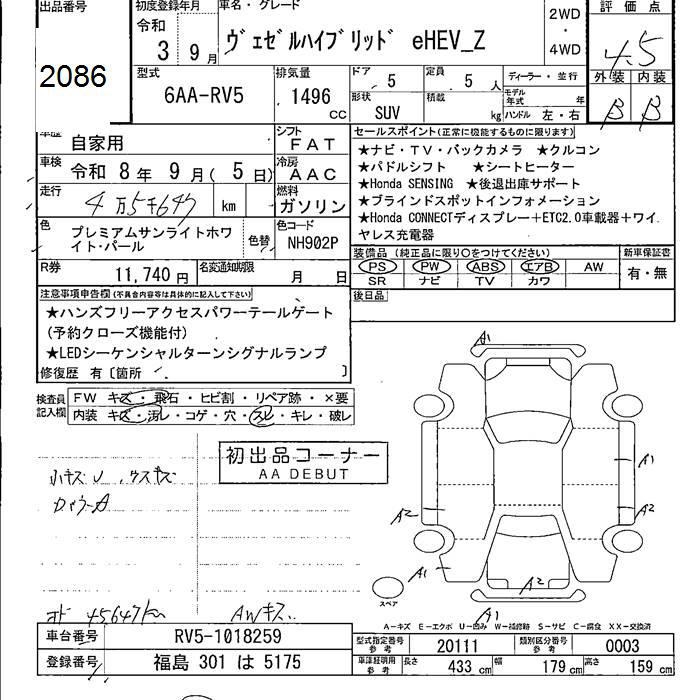 出品番号
2086
初度登録年月
令和
3 9月
車名・グレード
ヴェゼルハイブリッド eHEV_Z
2WD
・
4WD
評価点
4.5
外装 内装
B B
型式
6AA-RV5
排気量
1496 cc
ドア
5
定員
5 人
形状
SUV
積載
kg
ディーラー・並行
モデル年式 年
ハンドル 左・右
車歴
自家用
シフト
FAT
車検
令和 8年 9月( 5日)
冷房
AAC
走行
4万5千647 km
燃料
ガソリン
色
プレミアムサンライトホワイト・パール
色替
色コード
NH902P
R券
11,740円
名変通知期限
月 日
セールスポイント(正常に機能するものに限ります)
★ナビ・TV・バックカメラ ★クルコン
★パドルシフト ★シートヒーター
★Honda SENSING ★後退出庫サポート
★ブラインドスポットインフォメーション
★Honda CONNECTディスプレー+ETC2.0車載器+ワイ
ヤレス充電器
装備品(純正品に限り○をつけてください)
PS PW ABS エアB AW
SR ナビ TV カワ
新車保証書
有・無
後日品
注意事項申告欄(不具合内容等は具体的に記入して下さい)
★ハンズフリーアクセスパワーテールゲート
(予約クローズ機能付)
★LEDシーケンシャルターンシグナルランプ
修復歴 有〔箇所 〕
検査員
記入欄
FW キズ・飛石・ヒビ割・リペア跡・×要
内装 キズ・汚レ・コゲ・穴・スレ・キレ・破レ
初出品コーナー
AA DEBUT
小キズU ウスキズ
オド 45647km
AWキズ
A1
A1
A2
A2
A1
A2
A1
スペア
A-キズ E-エクボ U-凹み W-補修跡 S-サビ C-腐食 XX-交換済
車台番号
RV5-1018259
登録番号
福島 301 は 5175
型式指定番号
参考
20111
類別区分番号
参考
0003
車庫証明用
参考
長さ 433 cm
幅 179 cm
高さ 159 cm